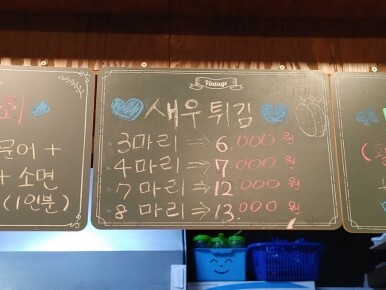 회
문어 +
+ 소면
(1인분)
Vintage
새우튀김
3마리 ⇒ 6.000원
4마리 ⇒ 7.000원
7마리 ⇒ 12.000원
8마리 ⇒ 13.000원